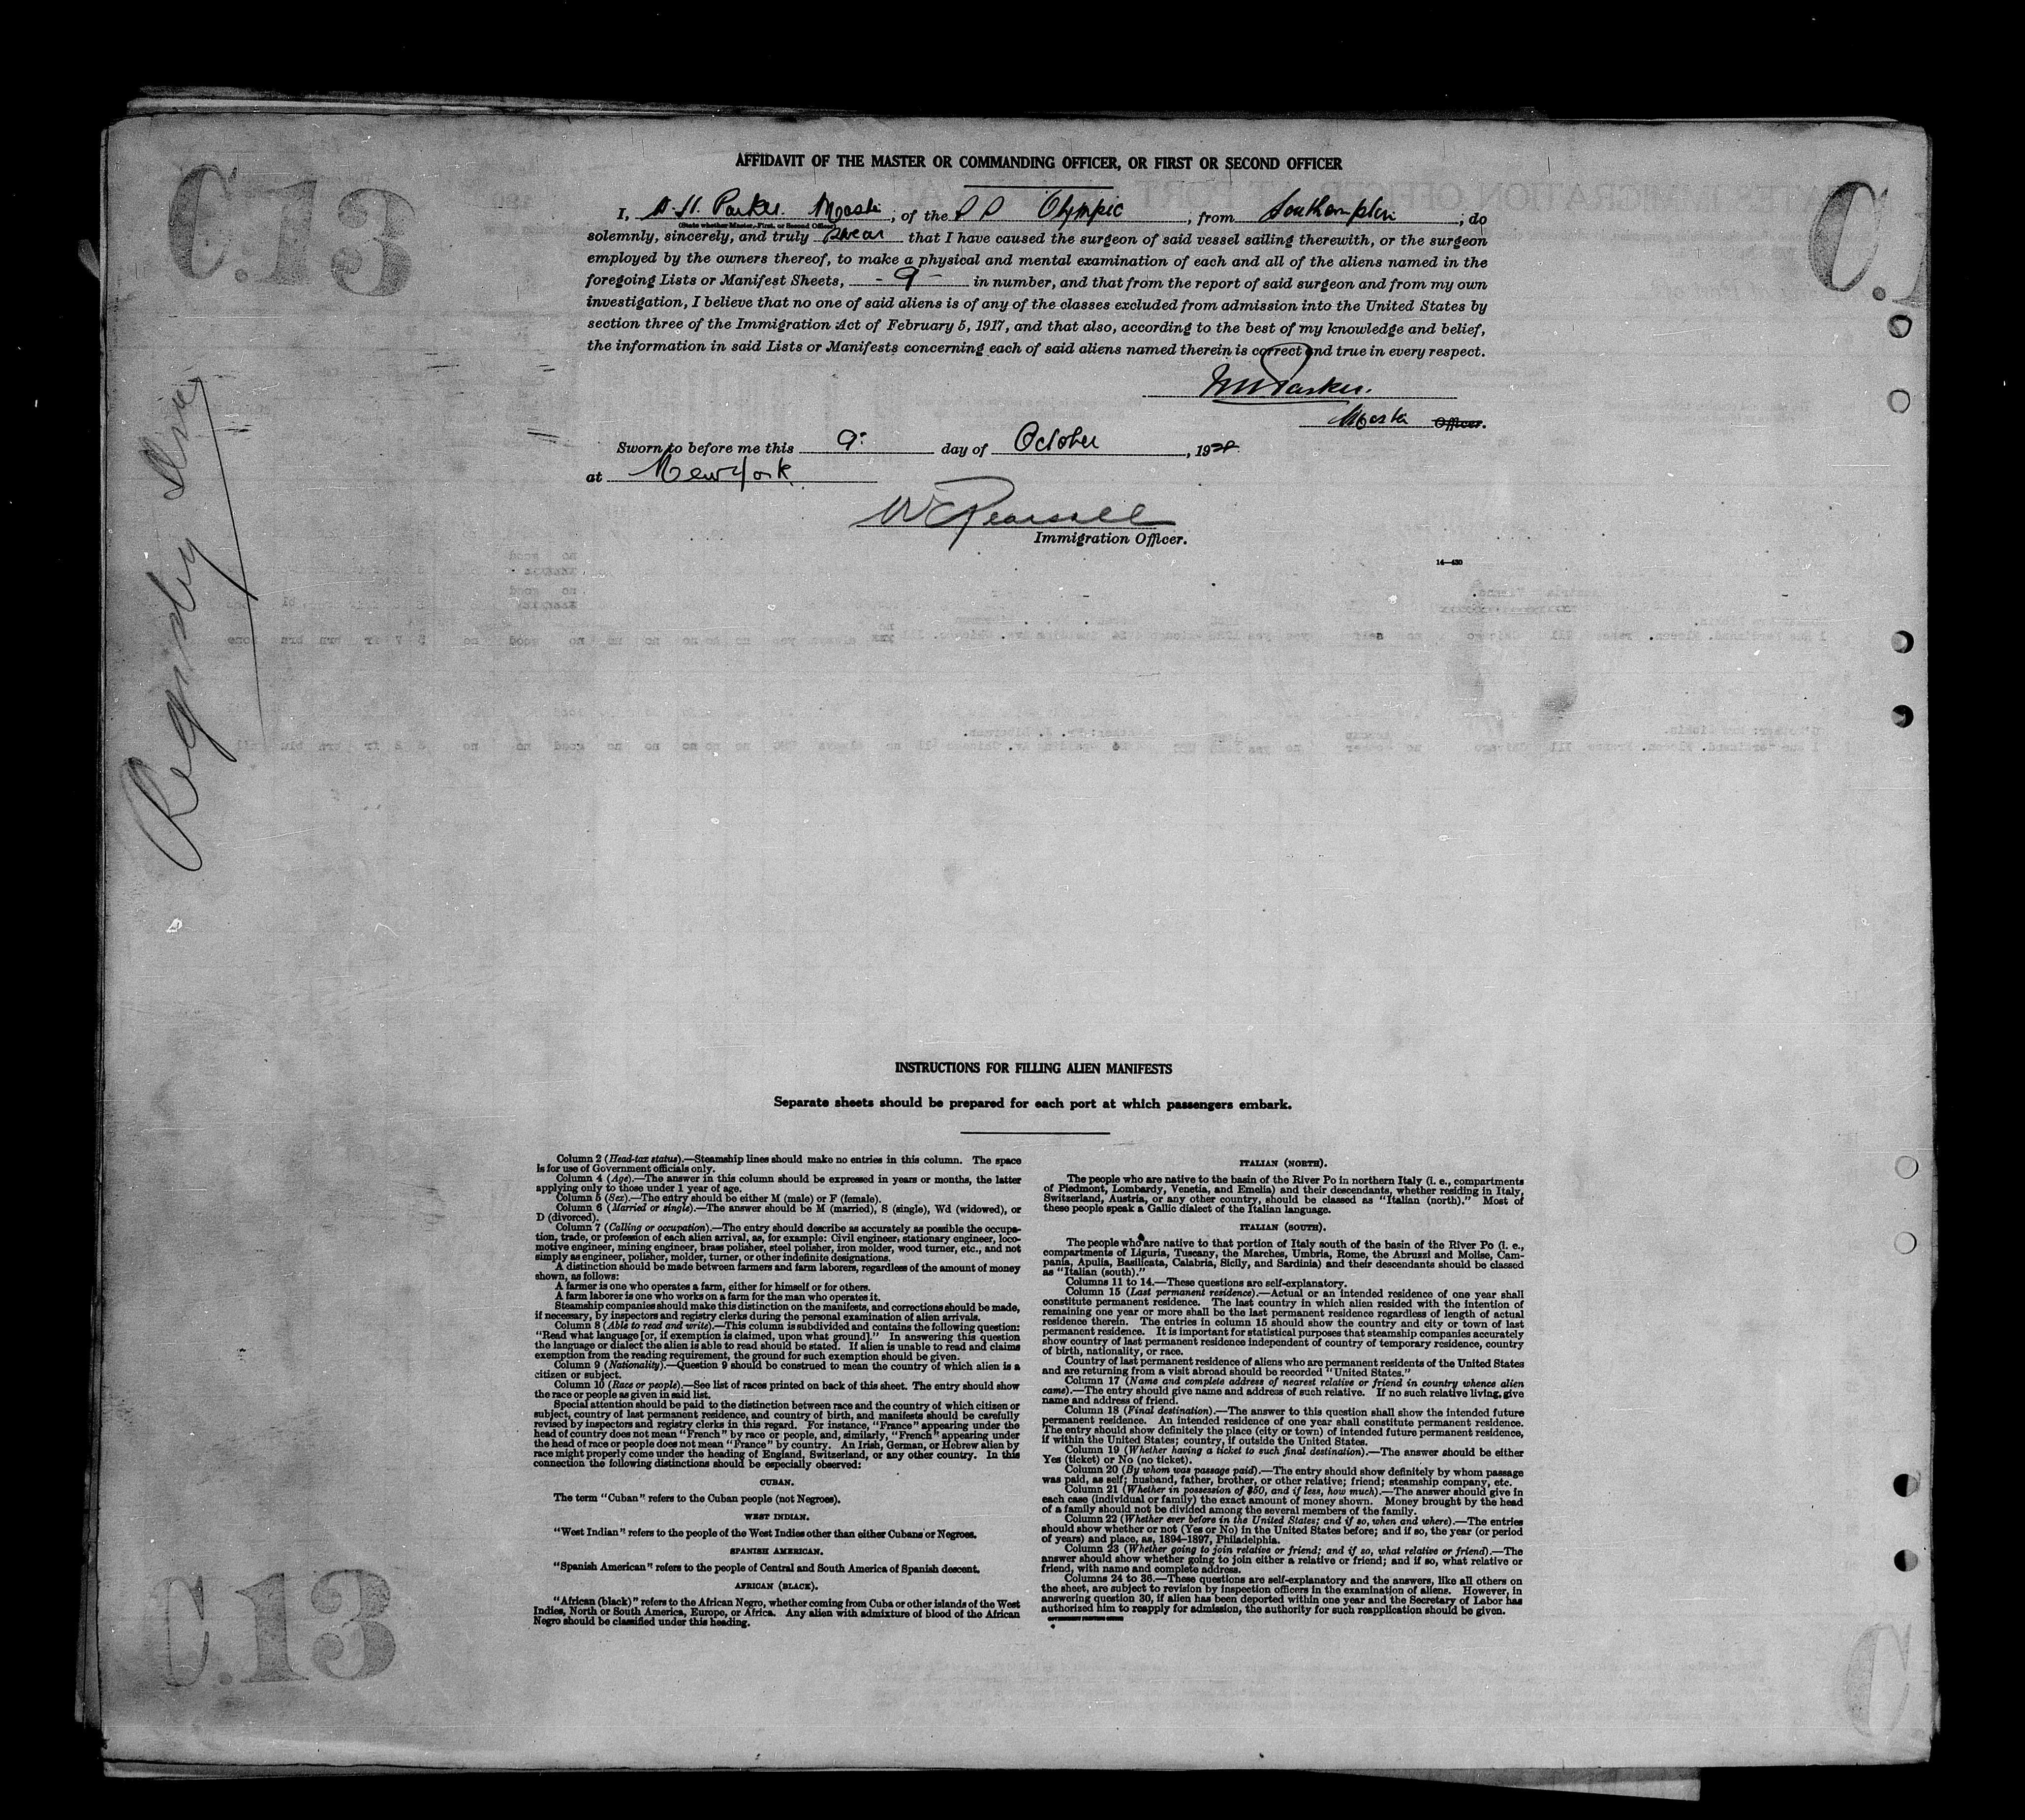 C.13
C.1
AFFIDAVIT OF THE MASTER OR COMMANDING OFFICER, OR FIRST OR SECOND OFFICER
I, Parker. Master, of the S S Olympic, from Southampton; do
(State whether Master, First, or Second Officer)
solemnly, sincerely, and truly swear that I have caused the surgeon of said vessel sailing therewith, or the surgeon
employed by the owners thereof, to make a physical and mental examination of each and all of the aliens named in the
foregoing Lists or Manifest Sheets, - 9 - in number, and that from the report of said surgeon and from my own
investigation, I believe that no one of said aliens is of any of the classes excluded from admission into the United States by
section three of the Immigration Act of February 5, 1917, and that also, according to the best of my knowledge and belief,
the information in said Lists or Manifests concerning each of said aliens named therein is correct and true in every respect.
Parker.
Master Officer.
Sworn to before me this 9 day of October, 19
at New York
Immigration Officer.
14—430
INSTRUCTIONS FOR FILLING ALIEN MANIFESTS
Separate sheets should be prepared for each port at which passengers embark.
Column 2 (Head-tax status).—Steamship lines should make no entries in this column. The space
is for use of Government officials only.
Column 4 (Age).—The answer in this column should be expressed in years or months, the latter
applying only to those under 1 year of age.
Column 5 (Sex).—The entry should be either M (male) or F (female).
Column 6 (Married or single).—The answer should be M (married), S (single), Wd (widowed), or
D (divorced).
Column 7 (Calling or occupation).—The entry should describe as accurately as possible the occupa-
tion, trade, or profession of each alien arrival, as, for example: Civil engineer, stationary engineer, loco-
motive engineer, mining engineer, brass polisher, steel polisher, iron molder, wood turner, etc., and not
simply as engineer, polisher, molder, turner, or other indefinite designations.
A distinction should be made between farmers and farm laborers, regardless of the amount of money
shown, as follows:
A farmer is one who operates a farm, either for himself or for others.
A farm laborer is one who works on a farm for the man who operates it.
Steamship companies should make this distinction on the manifests, and corrections should be made,
if necessary, by inspectors and registry clerks during the personal examination of alien arrivals.
Column 8 (Able to read and write).—This column is subdivided and contains the following question:
"Read what language [or, if exemption is claimed, upon what ground]." In answering this question
the language or dialect the alien is able to read should be stated. If alien is unable to read and claims
exemption from the reading requirement, the ground for such exemption should be given.
Column 9 (Nationality).—Question 9 should be construed to mean the country of which alien is a
citizen or subject.
Column 10 (Race or people).—See list of races printed on back of this sheet. The entry should show
the race or people as given in said list.
Special attention should be paid to the distinction between race and the country of which citizen or
subject, country of last permanent residence, and country of birth, and manifests should be carefully
revised by inspectors and registry clerks in this regard. For instance, "France" appearing under the
head of country does not mean "French" by race or people, and, similarly, "French" appearing under
the head of race or people does not mean "France" by country. An Irish, German, or Hebrew alien by
race might properly come under the heading of England, Switzerland, or any other country. In this
connection the following distinctions should be especially observed:
CUBAN.
The term "Cuban" refers to the Cuban people (not Negroes).
WEST INDIAN.
"West Indian" refers to the people of the West Indies other than either Cubans or Negroes.
SPANISH AMERICAN.
"Spanish American" refers to the people of Central and South America of Spanish descent.
AFRICAN (BLACK).
"African (black)" refers to the African Negro, whether coming from Cuba or other islands of the West
Indies, North or South America, Europe, or Africa. Any alien with admixture of blood of the African
Negro should be classified under this heading.
ITALIAN (NORTH).
The people who are native to the basin of the River Po in northern Italy (i. e., compartments
of Piedmont, Lombardy, Venetia, and Emelia) and their descendants, whether residing in Italy,
Switzerland, Austria, or any other country, should be classed as "Italian (north)." Most of
these people speak a Gallic dialect of the Italian language.
ITALIAN (SOUTH).
The people who are native to that portion of Italy south of the basin of the River Po (i. e.,
compartments of Liguria, Tuscany, the Marches, Umbria, Rome, the Abruzzi and Molise, Cam-
pania, Apulia, Basilicata, Calabria, Sicily, and Sardinia) and their descendants should be classed
as "Italian (south)."
Columns 11 to 14.—These questions are self-explanatory.
Column 15 (Last permanent residence).—Actual or an intended residence of one year shall
constitute permanent residence. The last country in which alien resided with the intention of
remaining one year or more shall be the last permanent residence regardless of length of actual
residence therein. The entries in column 15 should show the country and city or town of last
permanent residence. It is important for statistical purposes that steamship companies accurately
show country of last permanent residence independent of country of temporary residence, country
of birth, nationality, or race.
Country of last permanent residence of aliens who are permanent residents of the United States
and are returning from a visit abroad should be recorded "United States."
Column 17 (Name and complete address of nearest relative or friend in country whence alien
came).—The entry should give name and address of such relative. If no such relative living, give
name and address of friend.
Column 18 (Final destination).—The answer to this question shall show the intended future
permanent residence. An intended residence of one year shall constitute permanent residence.
The entry should show definitely the place (city or town) of intended future permanent residence,
if within the United States; country, if outside the United States.
Column 19 (Whether having a ticket to such final destination).—The answer should be either
Yes (ticket) or No (no ticket).
Column 20 (By whom was passage paid).—The entry should show definitely by whom passage
was paid, as self; husband, father, brother, or other relative; friend; steamship company, etc.
Column 21 (Whether in possession of $50, and if less, how much).—The answer should give in
each case (individual or family) the exact amount of money shown. Money brought by the head
of a family should not be divided among the several members of the family.
Column 22 (Whether ever before in the United States; and if so, when and where).—The entries
should show whether or not (Yes or No) in the United States before; and if so, the year (or period
of years) and place, as, 1894-1897, Philadelphia.
Column 23 (Whether going to join relative or friend; and if so, what relative or friend).—The
answer should show whether going to join either a relative or friend; and if so, what relative or
friend, with name and complete address.
Columns 24 to 36.—These questions are self-explanatory and the answers, like all others on
the sheet, are subject to revision by inspection officers in the examination of aliens. However, in
answering question 30, if alien has been deported within one year and the Secretary of Labor has
authorized him to reapply for admission, the authority for such reapplication should be given.
C.13
C